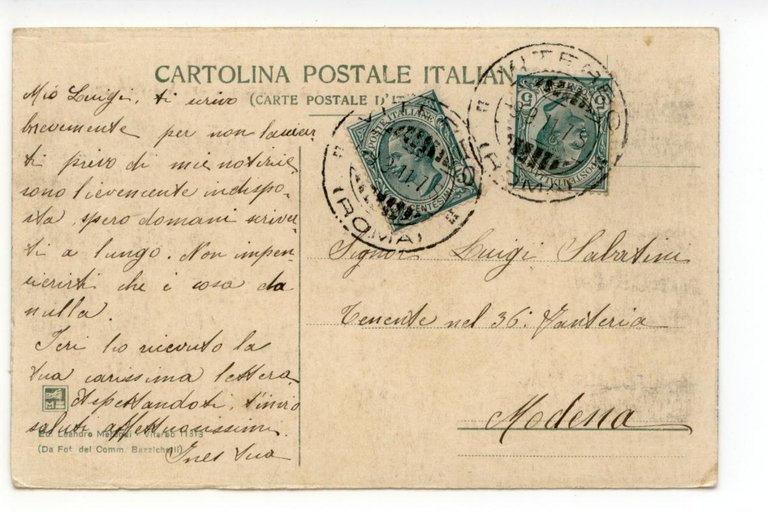 CARTOLINA POSTALE ITALIAN
(CARTE POSTALE D'IT
Mio Luigi, ti scrivo
brevemente per non lasciar
ti privo di mie notizie
sono lievemente indispo-
sta, spero domani scriver
ti a lungo. Non impen-
sierirti che è cosa da
nulla.
Ieri ho ricevuto la
tua carissima lettera.
Aspettandoti, t'invio
saluti affettuosissimi.
Ines tua
Signor Luigi Sabatini
Tenente nel 36º Fanteria
Modena
VITERBO
(ROMA)
POSTE ITALIANE
CENTESIMI
5
VITERBO
(ROMA)
5
Ed. Leandro - Viterbo 11513
(Da Fot. del Comm. Bazzichelli)